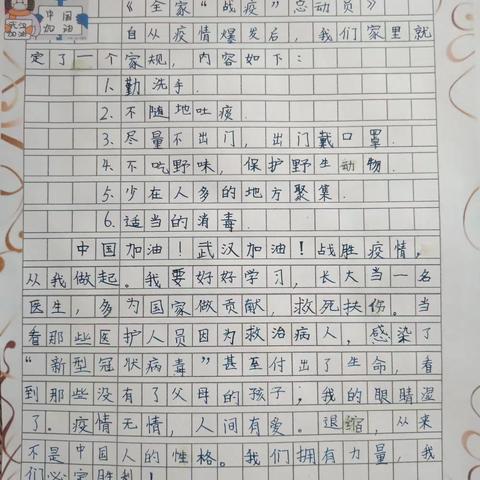 武汉加油
中国加油
《全家“战疫”总动员》
自从疫情爆发后，我们家里就
定了一个家规，内容如下：
1.勤洗手.
2.不随地吐痰.
3.尽量不出门，出门戴口罩.
4.不吃野味，保护野生动物.
5.少在人多的地方聚集.
6.适当的消毒.
中国加油！武汉加油！战胜疫情，
从我做起。我要好好学习，长大当一名
医生，多为国家做贡献，救死扶伤。当
看那些医护人员因为救治病人，感染了
“新型冠状病毒”甚至付出了生命，看
到那些没有了父母的孩子；我的眼睛湿
了。疫情无情，人间有爱。退缩，从来
不是中国人的性格。我们拥有力量，我
们必定胜利！